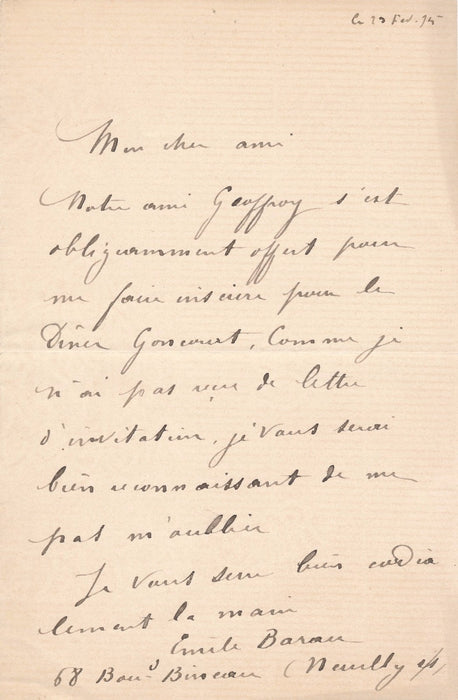 le 23 Fev. 95
Mon cher ami
Notre ami Geoffroy s'est
obligeamment offert pour
me faire inscrire pour le
Dîner Goncourt, Comme je
n'ai pas reçu de lettre
d'invitation, je vous serai
bien reconnaissant de ne
pas m'oublier
Je vous serre bien cordia
lement la main
Emile Barau
68 Boud Bineau (Neuilly s/s)